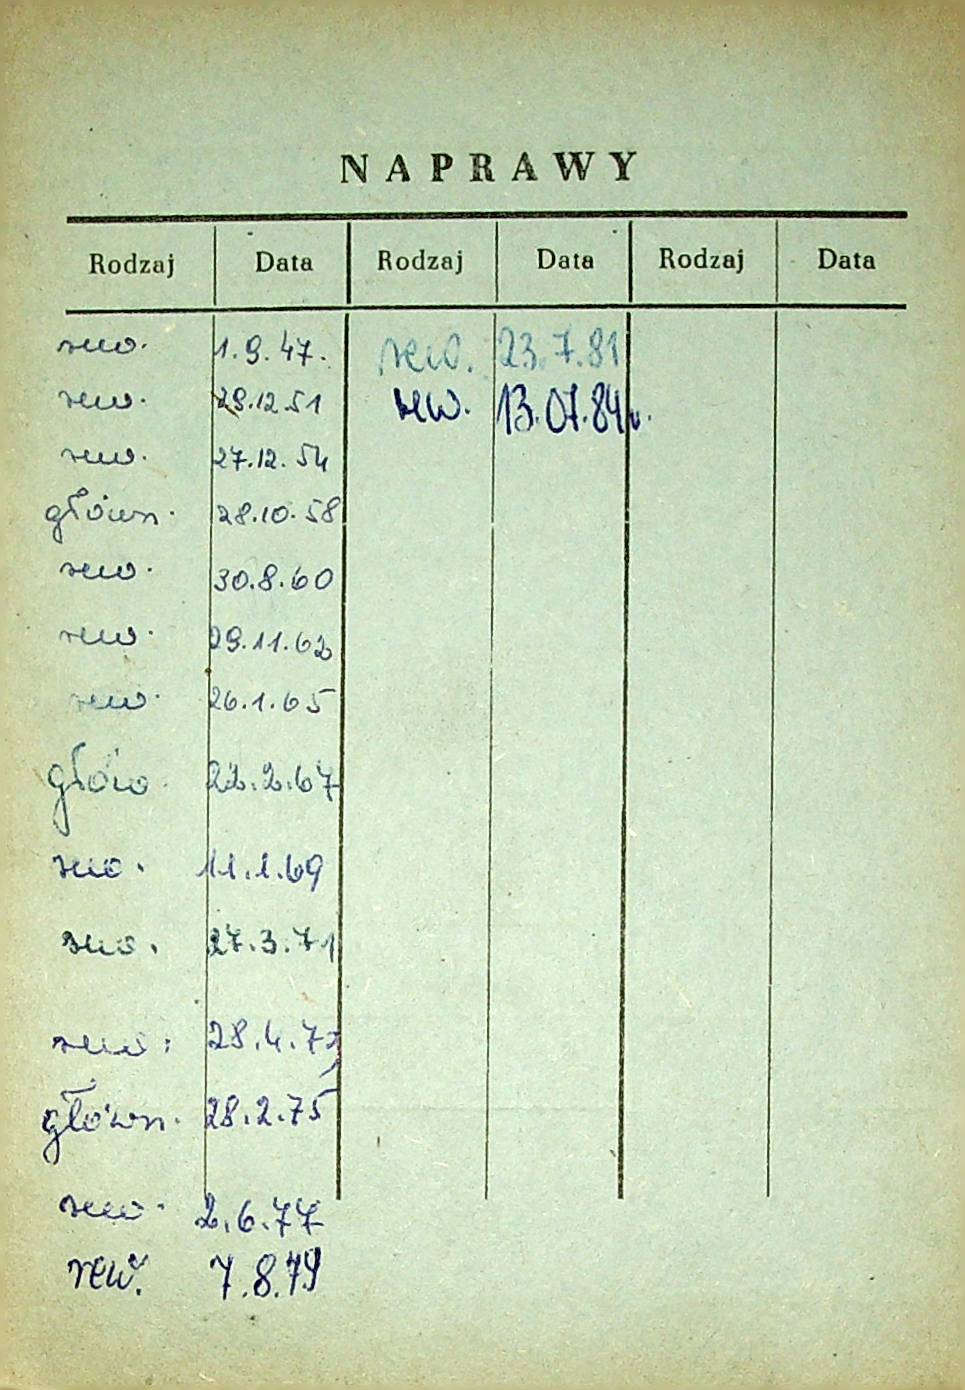 NAPRAWY
Rodzaj Data Rodzaj Data Rodzaj Data
rew. 1.9.47. rew. 23.7.81
rew. 29.12.51 rew. 13.07.84r.
rew. 27.12.54
główn. 28.10.58
rew. 30.8.60
rew. 29.11.62
rew. 26.1.65
głów. 22.2.67
rew. 11.1.69
rew. 27.3.71
rew. 28.4.73
główn. 28.2.75
rew. 2.6.77
rew. 7.8.79